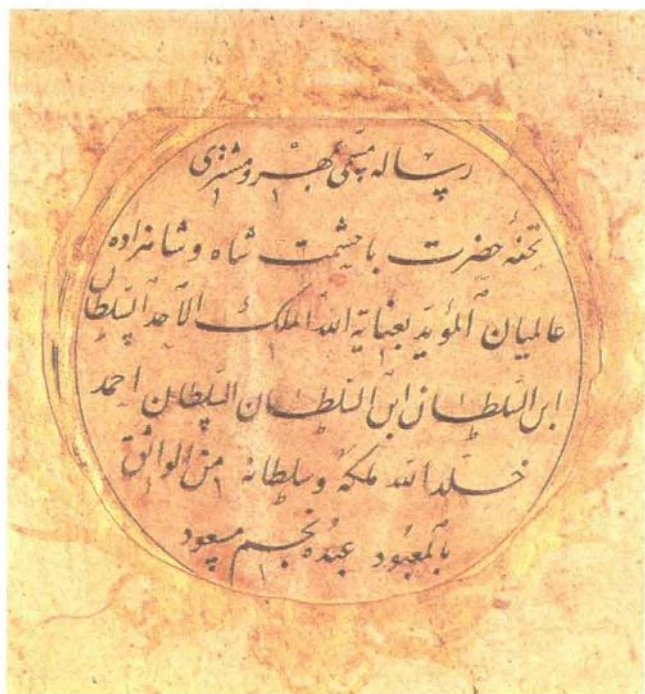 رساله مسمی بمهر و مشتری
تحفهٔ حضرت با حشمت شاه و شاهزاده
عالمیان المؤید بعنایة الله الملک الاحد السلطان
ابن السلطان ابن السلطان السلطان احمد
خلد الله ملکه و سلطانه من الواثق
بالمعبود عبده نجم مسعود